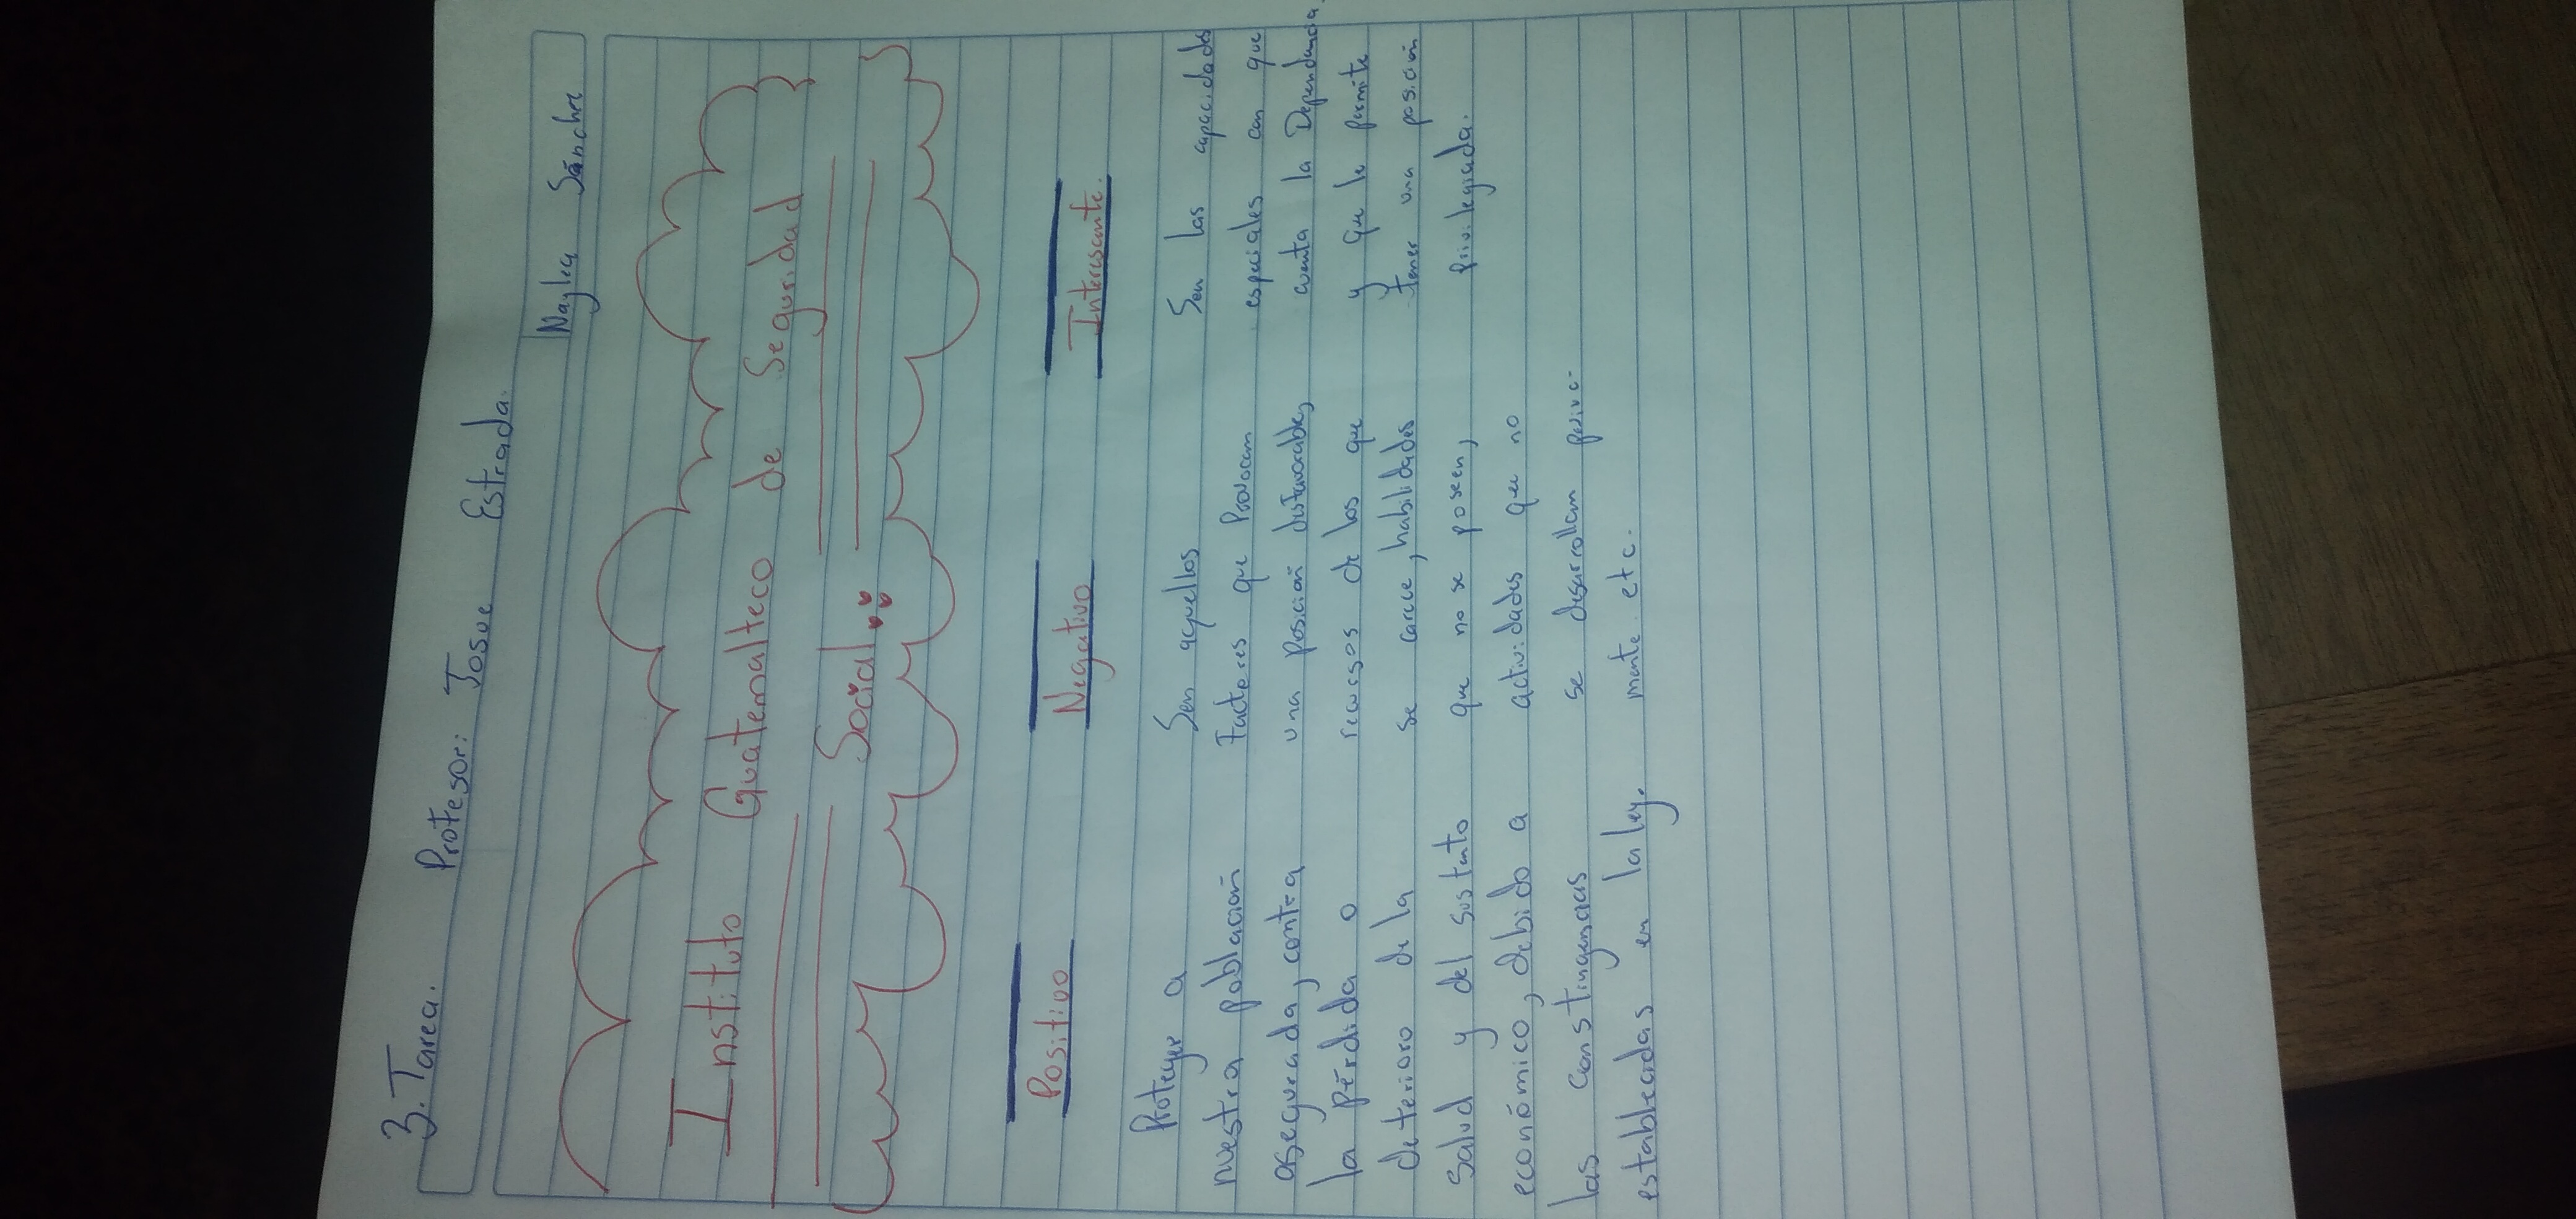 3. Tarea. Profesor: Josue Estrada.
Naylea Sánchez
Instituto Guatemalteco de Seguridad
Social
Positivo
Proteger a
nuestra población
asegurada, contra
la pérdida o
deterioro de la
salud y del sustento
económico, debido a
las constingencias
establecidas en la ley.
Negativo
Son aquellos
Factores que Provocan
una posición desfavorable,
recursos de los que
se carece, habilidades
que no se poseen,
actividades que no
se desarrollan
mente. etc.
Interesante.
Son las capacidades
especiales con que
cuenta la Dependencia.
y que le permite
tener una posición
privilegiada.